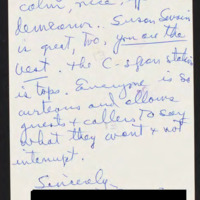 calm, nice,
demeanor. Susan Swain
is great, too, you are the
best. The C-span station
is tops. Everyone is so
curteous and allows
guests + callers to say
what they want + not
interrupt.
Sincerely